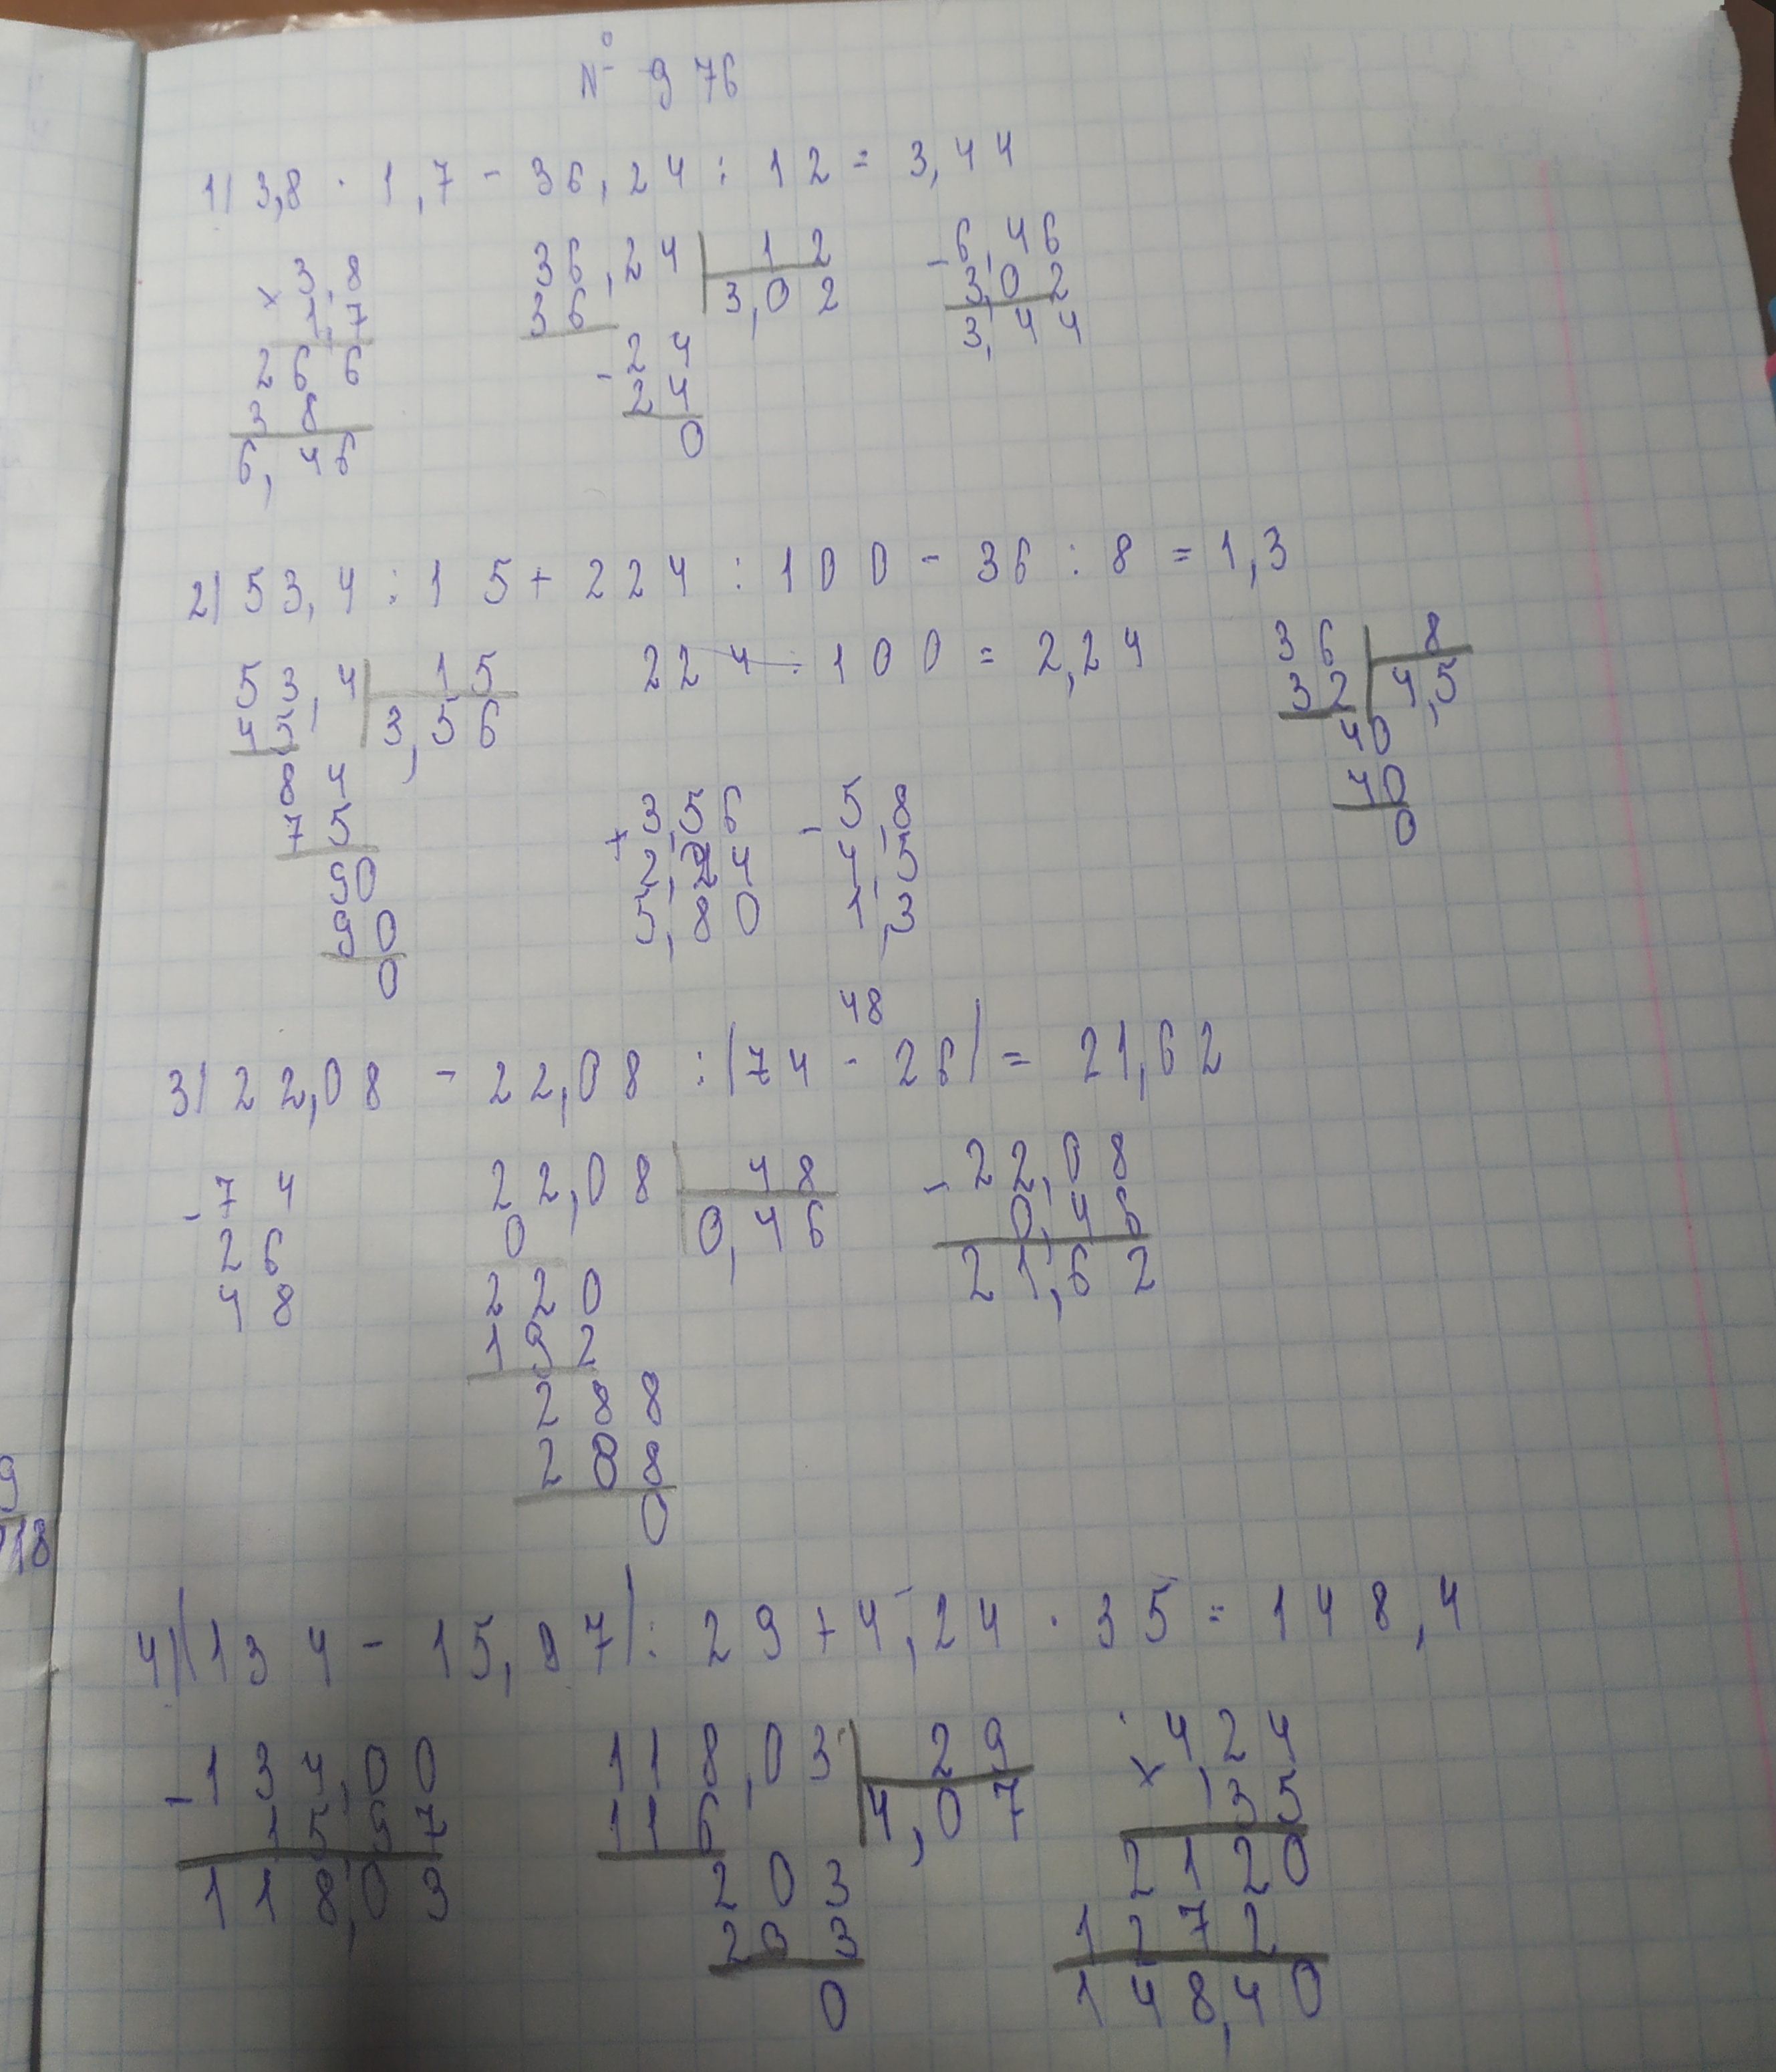 № 976
1) 3,8 · 1,7 - 36,24 : 12 = 3,44
× 3,8
1,7
26 6
3 8
6,46
36,24 | 12
36 | 3,02
- 24
24
0
- 6,46
3,02
3,44
2) 53,4 : 15 + 224 : 100 - 36 : 8 = 1,3
53,4 | 15
45 | 3,56
8 4
7 5
90
90
0
224 : 100 = 2,24
36 | 8
32 | 4,5
40
40
0
+ 3,56
2,24
5,80
- 5,8
4,5
1,3
48
3) 22,08 - 22,08 : (74 - 26) = 21,62
- 74
26
48
22,08 | 48
0 | 0,46
220
192
288
288
0
- 22,08
0,46
21,62
4) (134 - 15,97) : 29 + 4,24 · 35 = 148,4
- 134,00
15,97
118,03
118,03 | 29
116 | 4,07
203
203
0
× 4,24
35
2120
1272
148,40
9
18